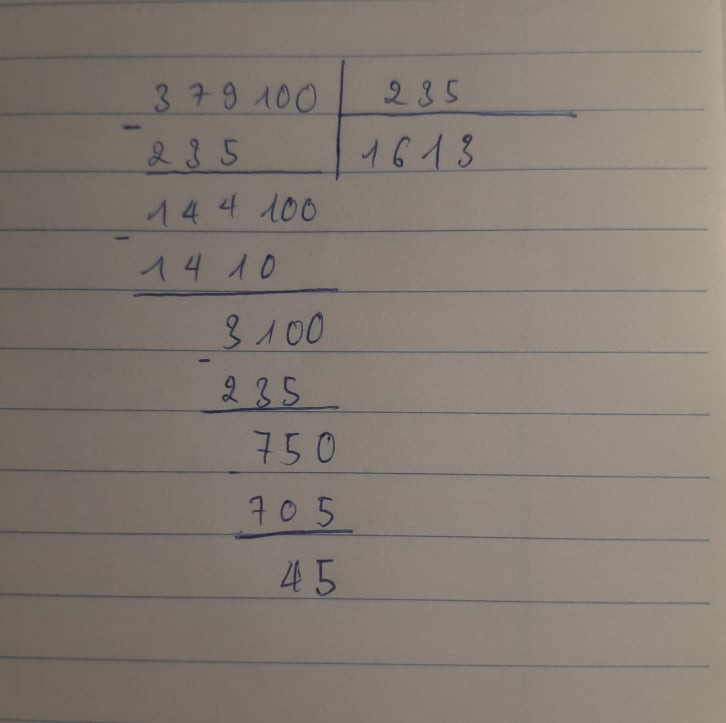 379100 | 235
- 235 | 1613
144100
- 1410
3100
- 235
750
- 705
45